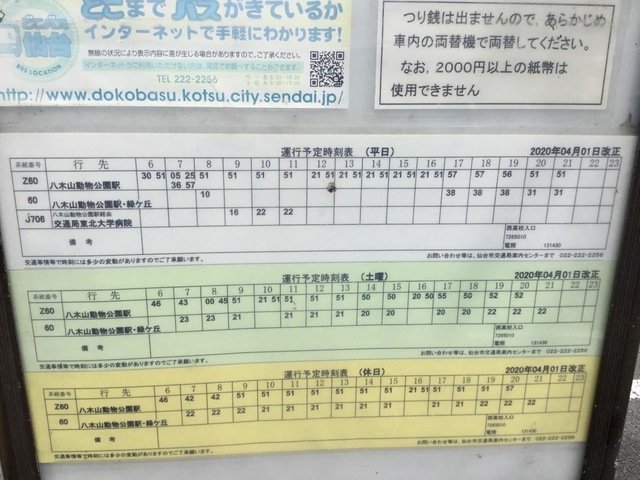 どこまでバスがきているか
インターネットで手軽にわかります!
無線の状況により表示内容に差が生じる場合がありますので、ご了承ください。
インターネットがご利用いただけない方は、電話でお調べすることもできます。
TEL 222-2256
BUS LOCATION
http://www.dokobasu.kotsu.city.sendai.jp/
つり銭は出ませんので、あらかじめ
車内の両替機で両替してください。
なお、2000円以上の紙幣は
使用できません
運行予定時刻表 (平日) 2020年04月01日改正
系統番号 行先 6 7 8 9 10 11 12 13 14 15 16 17 18 19 20 21 22 23
Z60 八木山動物公園駅 30 51 05 25 51 51 51 51 21 51 21 51 21 51 21 51 21 51 57 57 56 51 51
36 57
60 八木山動物公園駅・緑ケ丘 10 38 38 31 31 31
J706 八木山動物公園駅経由 16 22 22
交通局東北大学病院
備考
西高校入口
7285010
電照 131430
交通事情等で時刻には多少の変動がありますのでご了承願います。 お問い合わせ等は、仙台市交通局案内センターまで 022-222-2256
運行予定時刻表 (土曜) 2020年04月01日改正
系統番号 行先 6 7 8 9 10 11 12 13 14 15 16 17 18 19 20 21 22 23
Z60 八木山動物公園駅 46 43 00 45 51 21 51 51 51 51 50 50 20 50 55 50 52 52
60 八木山動物公園駅・緑ケ丘 23 23 21 21 21 20 20 20 21 22 22 22
備考
西高校入口
7285010
電照 131430
交通事情等で時刻には多少の変動がありますのでご了承願います。 お問い合わせ等は、仙台市交通局案内センターまで 022-222-2256
運行予定時刻表 (休日) 2020年04月01日改正
系統番号 行先 6 7 8 9 10 11 12 13 14 15 16 17 18 19 20 21 22 23
Z60 八木山動物公園駅 46 42 42 51 51 51 51 51 51 51 51 51 51 51 57
60 八木山動物公園駅・緑ケ丘 22 22 21 21 21 21 21 21 22 22 22
備考
西高校入口
7285010
電照 131430
交通事情等で時刻には多少の変動がありますのでご了承願います。 お問い合わせ等は、仙台市交通局案内センターまで 022-222-2256